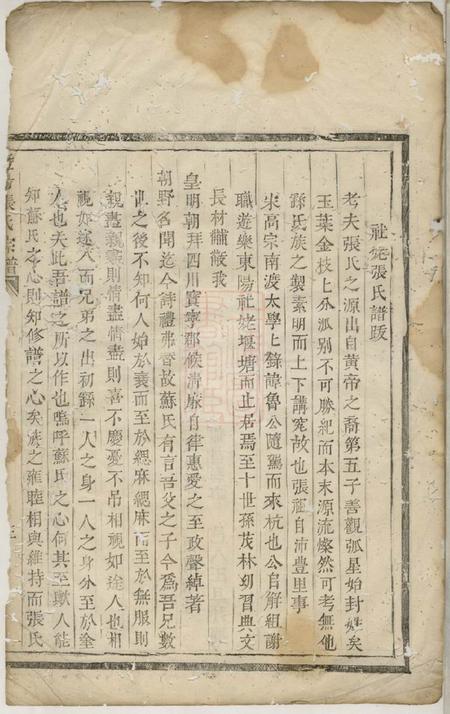 社姥張氏譜跋
考夫張氏之源出自黄帝之裔第五子善觀弧星始封姓矣
玉葉金枝上分派别不可勝紀而本末源流燦然可考無他
繇氏族之製素明而上下講究故也張祖自沛豊里事
宋高宗南渡太學上錄諱魯公隨駕而來杭也公自解組謝
職遊樂東陽社姥堰塘而止居焉至十世孫茂林幼習典文
長材黼黻我
皇明朝拜四川寳寧郡候清脩自律惠愛之至政聲綽著
朝野名聞迄今詩禮弗替故蘇氏有言吾父之子今爲吾兄數
世之後不知何人始於衰而至於緦麻緦麻而至於無服則
親盡親盡則情盡情盡則喜不慶憂不吊相視如途人也相
視如途人而兄弟之出初錄一人之身一人之身分至於塗
人也夫此吾譜之所以作也嗚呼蘇氏之心何其至歟人能
知蘇氏之心則知修譜之心矣族之雍睦相與維持而張氏
張氏宗譜